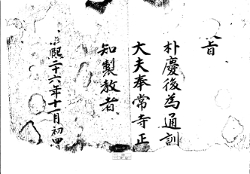 旨
朴慶後為通訓
大夫奉常寺正
知製教者
熙二十六年十一月初四